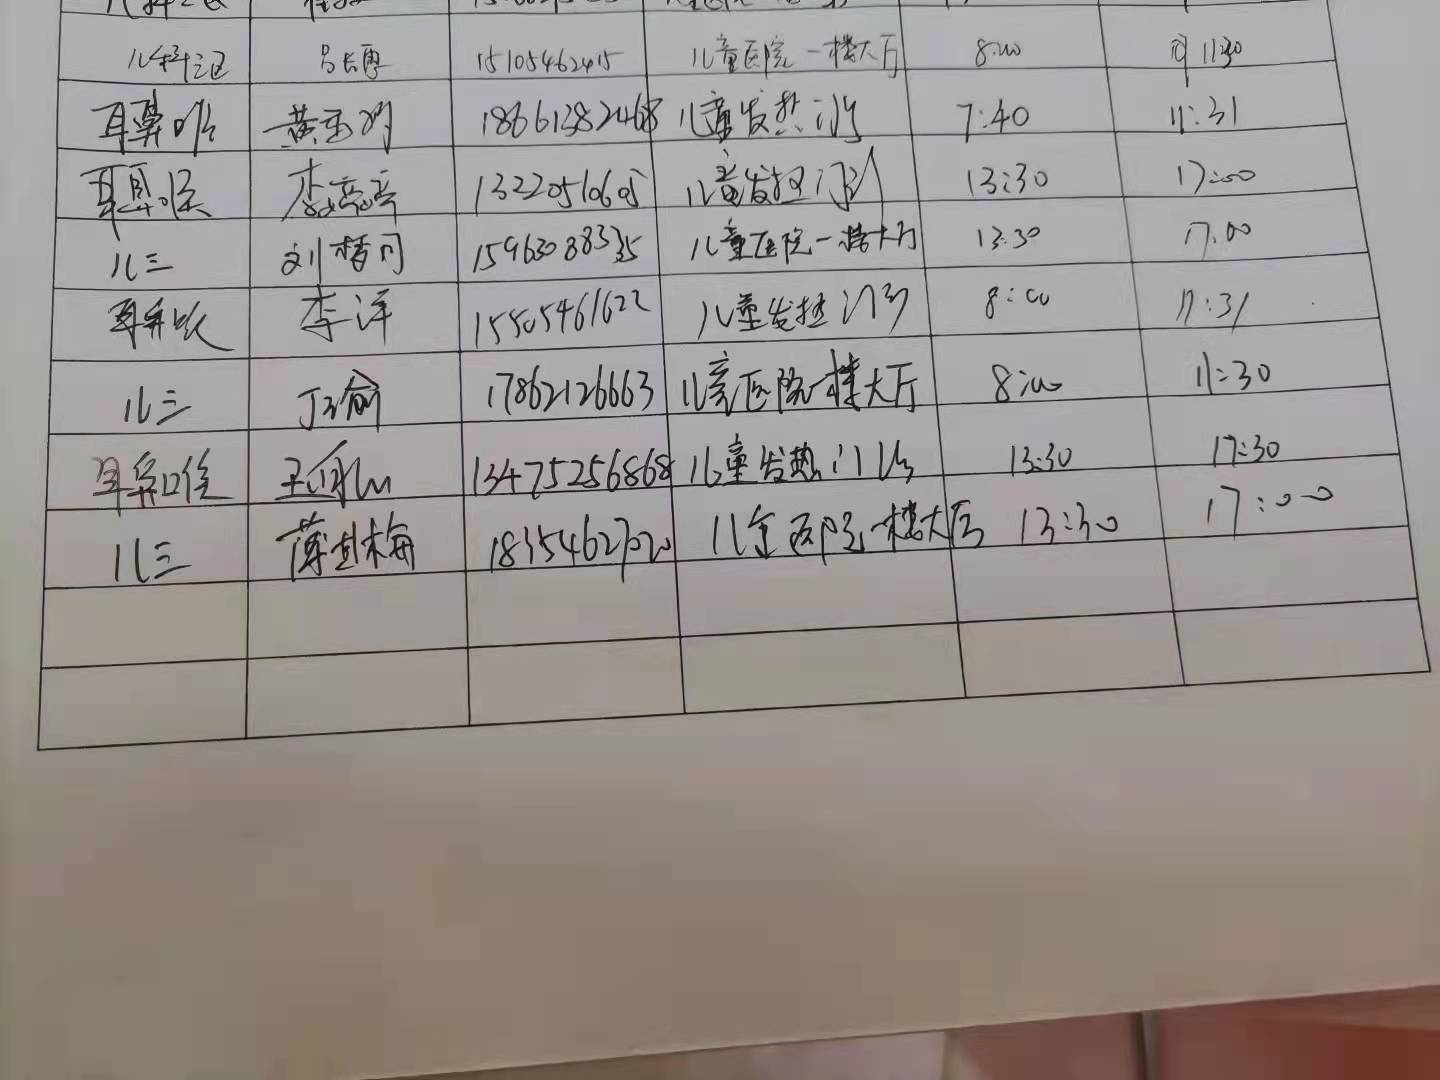 儿科三区 吕长惠 15105462415 儿童医院一楼大厅 8:00 11:30
耳鼻喉 黄 18661382468 儿童发热门诊 7:40 11:31
耳鼻喉 李亮亮 13220510605 儿童发热门诊 13:30 17:00
儿三 刘 15963088335 儿童医院一楼大厅 13:30 17:00
耳鼻喉 李洋 15505461622 儿童发热门诊 8:00 11:31
儿三 丁瑜 17862126663 儿童医院一楼大厅 8:00 11:30
耳鼻口侯 王 13475256868 儿童发热门诊 13:30 17:30
儿三 薄其梅 儿童医院一楼大厅 13:30 17:00